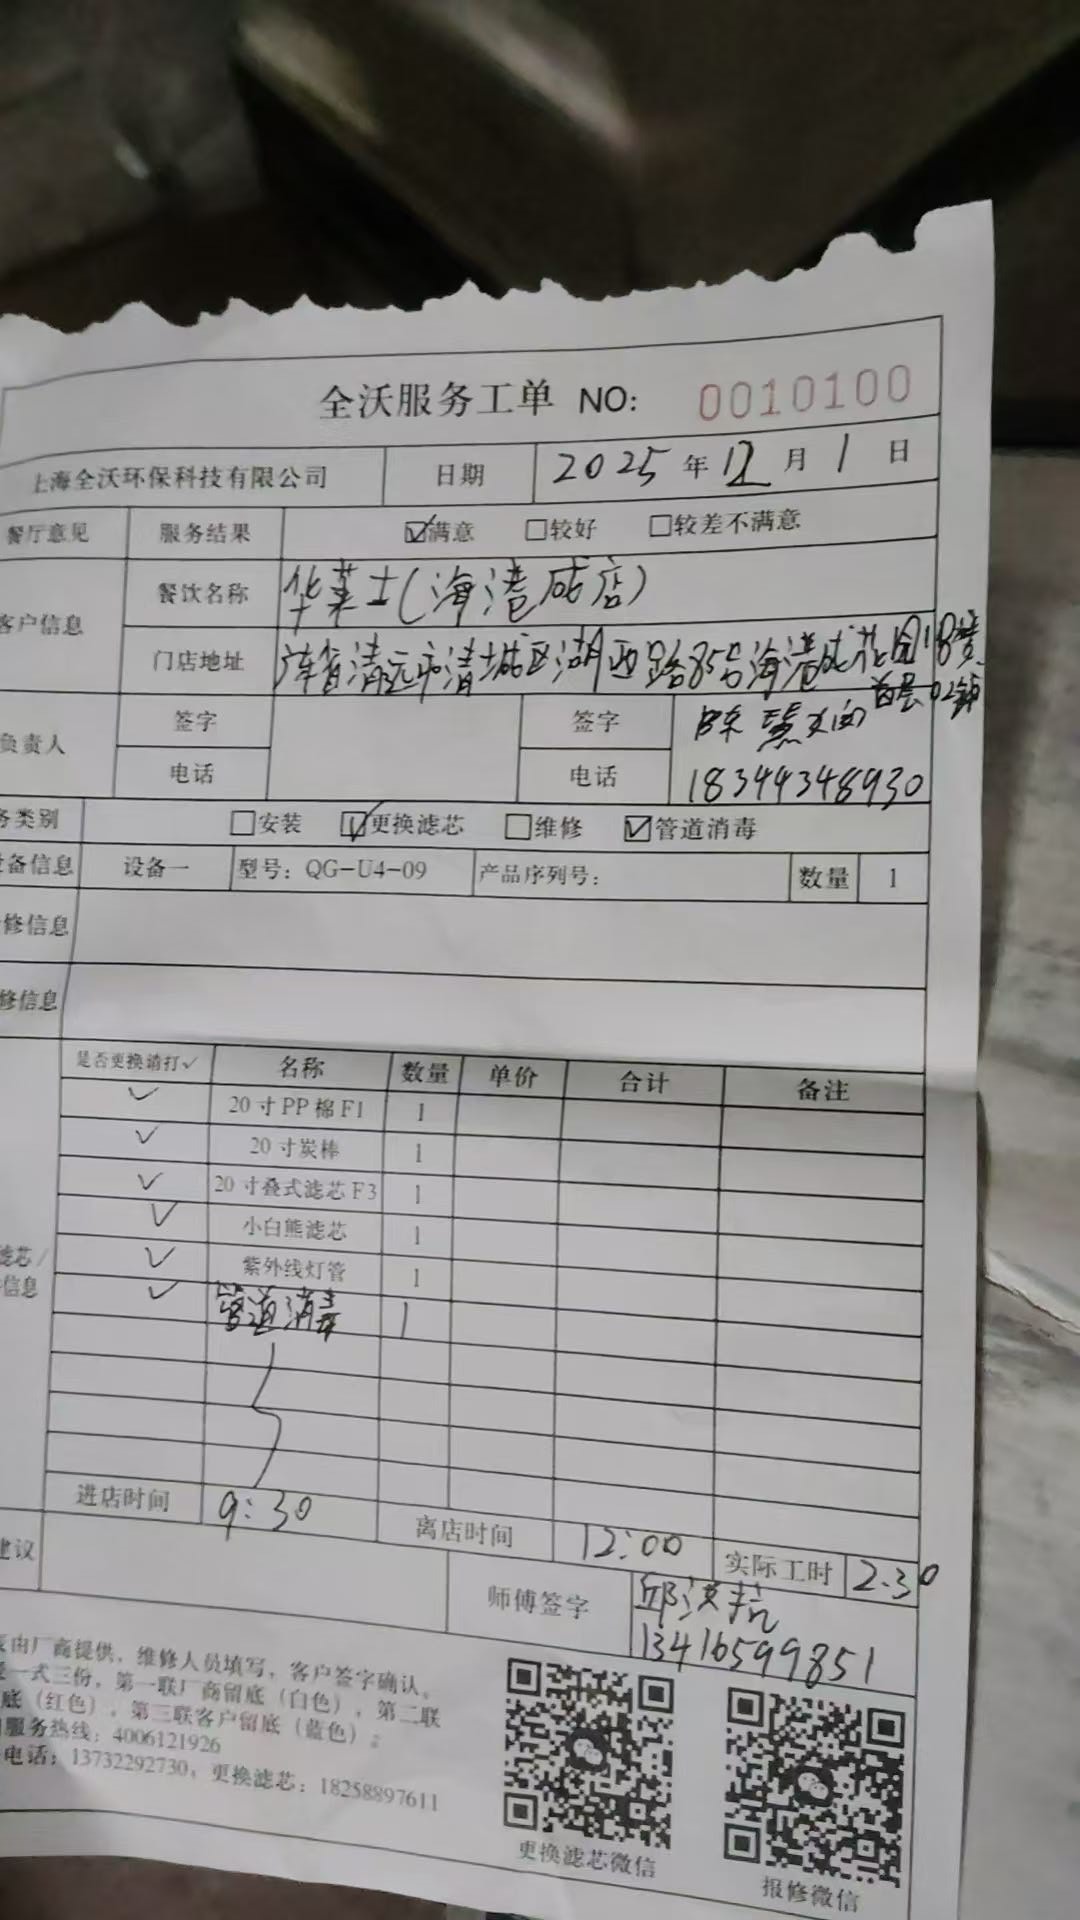 全沃服务工单 NO: 0010100
上海全沃环保科技有限公司 日期 2025 年 12 月 1 日
餐厅意见 服务结果 ☑满意 □较好 □较差不满意
客户信息 餐饮名称 华莱士(海港成店)
门店地址 广东省清远市清城区湖西路85号海港成花园18
首层02铺
负责人 签字 签字 陈
电话 电话 18344348930
务类别 □安装 ☑更换滤芯 □维修 ☑管道消毒
备信息 设备一 型号：QG-U4-09 产品序列号： 数量 1
修信息
修信息
是否更换请打✓ 名称 数量 单价 合计 备注
✓ 20寸PP棉F1 1
✓ 20寸炭棒 1
✓ 20寸叠式滤芯F3 1
✓ 小白熊滤芯 1
✓ 紫外线灯管 1
✓ 管道消毒 1
滤芯/
信息
进店时间 9:30 离店时间 12:00 实际工时 2.30
建议 师傅签字 邱
13416599851
由厂商提供，维修人员填写，客户签字确认。
一式三份，第一联厂商留底（白色），第二联
底（红色），第三联客户留底（蓝色）；
服务热线：4006121926
电话：13732292730，更换滤芯：18258897611
更换滤芯微信 报修微信